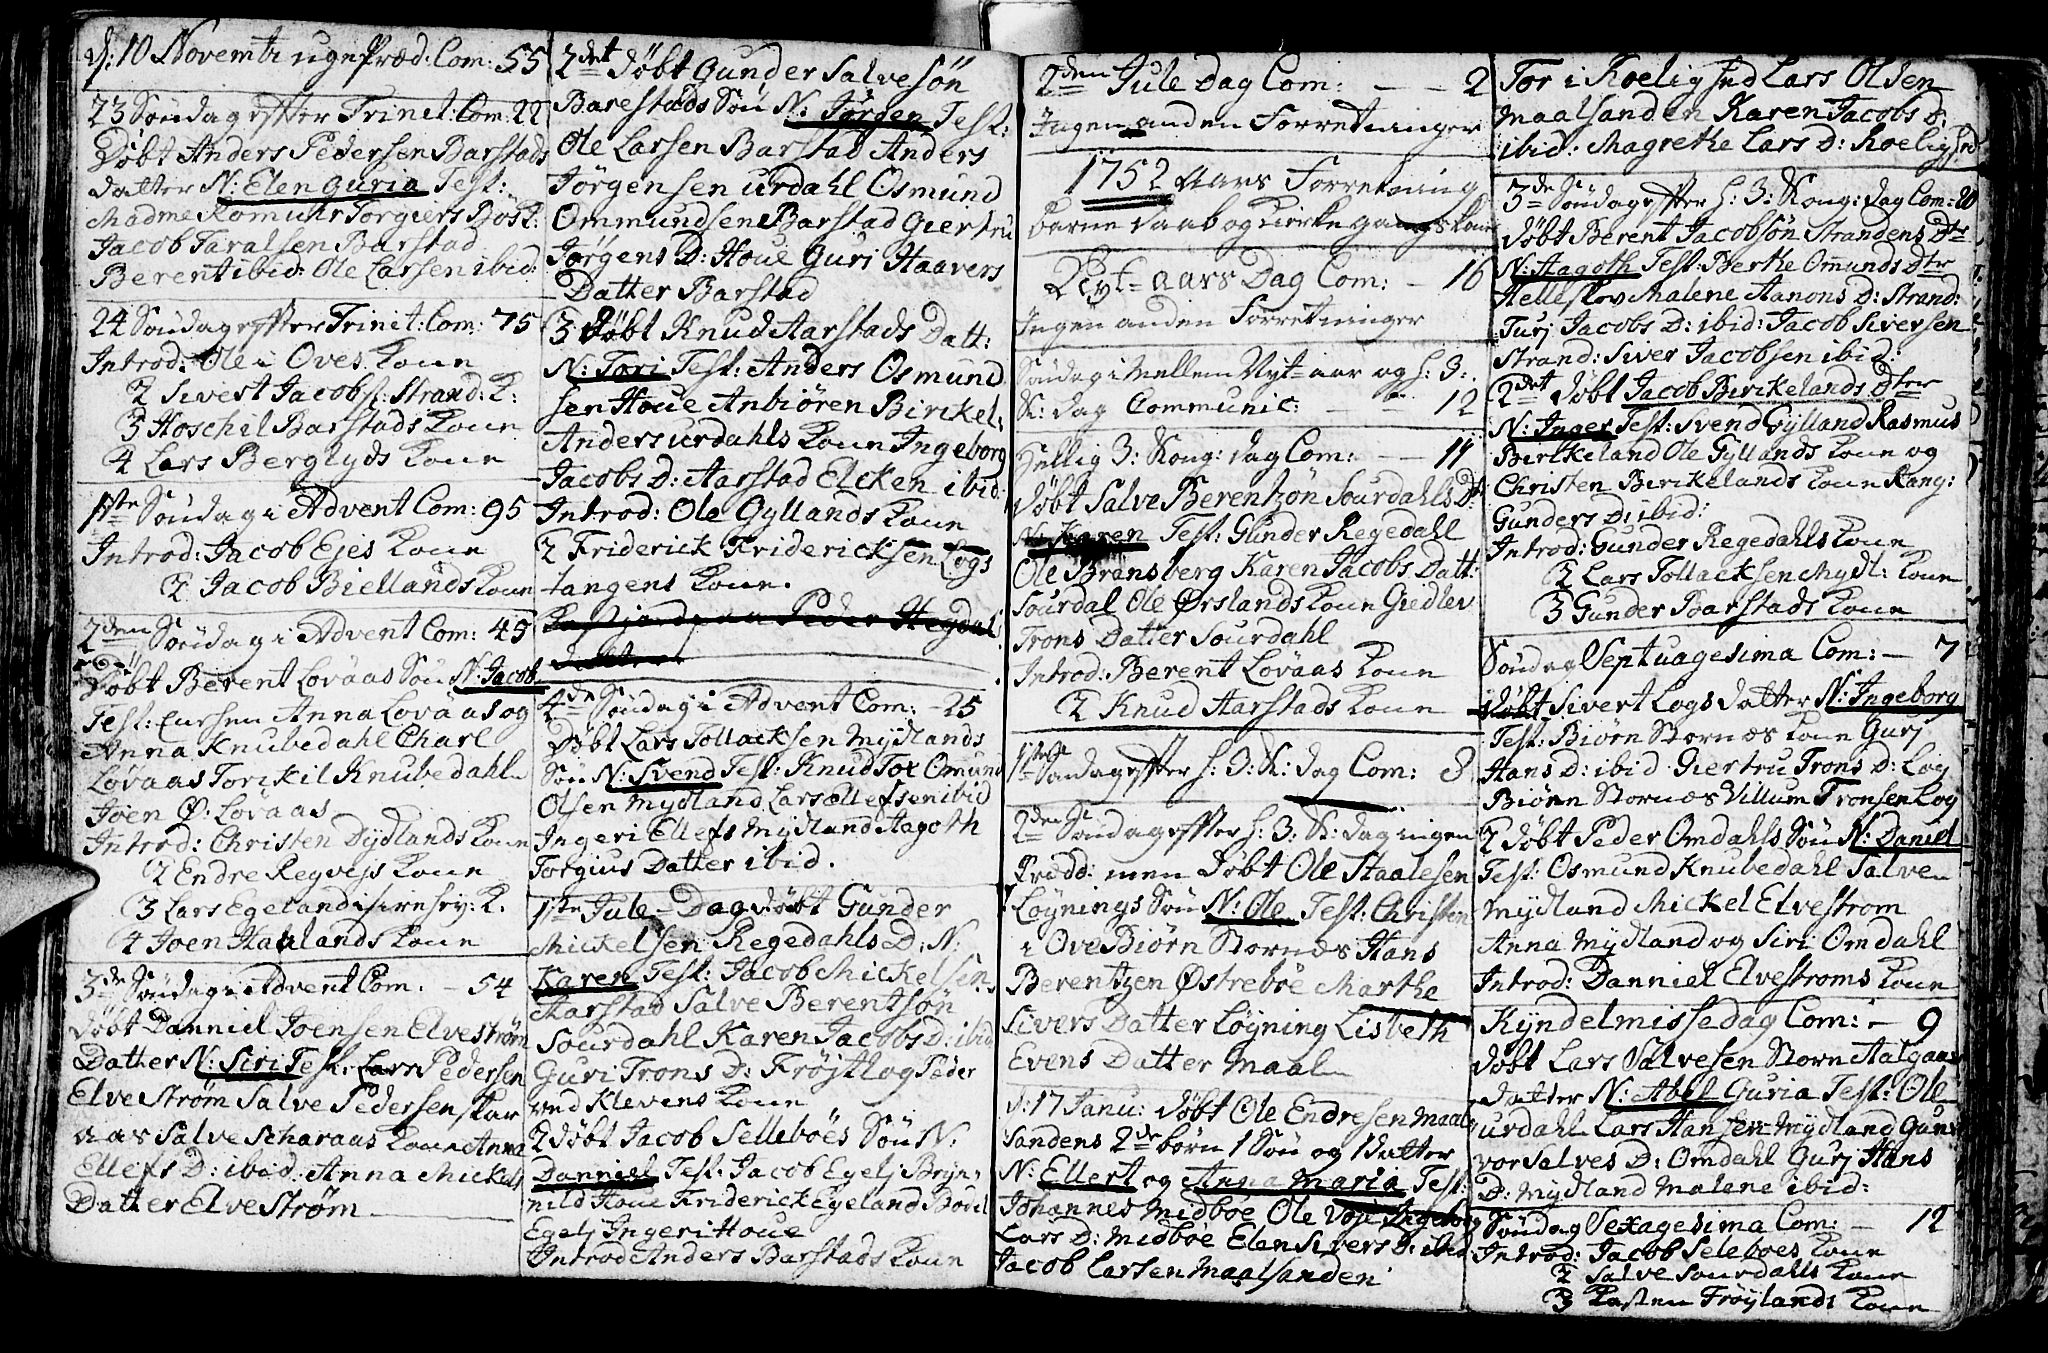 d: 10 Novembr ugepræd: Com: 55
23 Søndag effter Trinet: Com: 22
Døbt Anders Pedersen Barstads
datter N: Elen Guria Test:
Madme Romuhr Torgiers Bösk:
Jacob Taralsen Barstad
Berent ibid: Ole Larsen ibid:
24 Søndag effter Trinet: Com: 75
Introd: Ole i Oves Kone
2 Sivert Jacobs: Strand: K:
3 Hoschil Barstads Kone
4 Lars Berglyds Kone
1ste Søndag i Advent Com: 95
Introd: Jacob Ejes Kone
2 Jacob Biellands Kone
2den Søndag i Advent Com: 45
Døbt Berent Lovaas Søn N: Jacob
Test: Anna Lovaas og
Anna Knubedahl Charl
Lovaas Torckil Knubedahl
Joen Ø: Lovaas
Introd: Christen Dydlands Kone
2 Endre Regvejs Kone
3 Lars Egeland K:
4 Joen Haalands Kone
3de Søndag i Advent Com: - 54
Døbt Danniel Joensen Elvestrøm
Datter N: Siri Test: Lars Pedersen
Elvestrøm Salve Pedersen Skar
aas Salve Scharaas Kone Anna
Ellefs D: ibid: Anna Mickels
Datter Elvestrøm
2det Døbt Gunder Salvesøn
Barestads Søn N: Jørgen Test:
Ole Larsen Barstad Anders
Jörgensen Urdahl Osmund
Ommundsen Barstad Giertru
Jørgens D: Houe Guri Haavers
Datter Barstad
3 Døbt Knud Aarstads Datt:
N: Tori Test: Anders Osmund
sen Houe Anbiören Birckel:
Anders Urdahls Kone Ingeborg
Jacobs D: Aarstad Elcken ibid:
Introd: Ole Gyllands Kone
2 Friderick Fridericksen Logs
tangens Kone.
Peder Hegdal
datter
4de Søndag i Advent Com: - 25
Døbt Lars Tollacksen Mydlands
Søn N: Svend Test: Knud Tor Omund
Olsen Mydland Lars Ellefsen ibid
Ingeri Ellefs Mydland Aagoth
Torgius Datter ibid.
1ste Jule-Dag døbt Gunder
Mickelsen Regedahls D: N:
Karen Test: Jacob Mickelsen
Aarstad Salve Berentsøn
Sourdahl Karen Jacobs D: ibid
Guri Trons D: Frøjtlog Peder
ved Klevens Kone
2 Døbt Jacob Selleböes Søn N:
Danniel Test: Jacob Egelj Bryn-
nild Houe Friderick Egeland Bodil
Egelj Ingeri Houe
Introd Anders Barstads Kone
2den Jule Dag Com: - - 2
Ingen anden Forretninger
1752 Aars Forretning
barne Daab og Kirkegangs koner
Nyt-aars Dag Com: - 16
Ingen anden Forretninger
Søndag i Mellem Nyt-aar og h: 3:
K: dag Communic: - - 12
Hellig 3: Kong: dag Com: - - 11
Døbt Salve Berentzøn Sourdahls Dtr
N: Karen Test: Gunder Regedahl
Ole Bransberg Karen Jacobs Datt:
Sourdal Ole Ørslands Kone Giedlev
Trons Datter Sourdahl
Introd: Berent Lovaas Kone
2 Knud Aarstads Kone
1ste Søndag effter h: 3: K: dag Com: 8
2den Søndag effter h: 3: K: dag ingen
Prædd: men Døbt Ole Staalesen
Løynings Søn N: Ole Test: Christen
i Ove Biørn Stornæs Hans
Berentzen Østrebøe Marthe
Sivers Datter Løyning Lisbeth
Evens Datter Maal
d: 17 Janu: døbt Ole Endresen Maal
sandens 2de børn 1 Søn og 1 datter
N: Ellert og Anna Maria Test:
Johannes Midboe Ole Vose Ingeborg
Lars D: Midbøe Elen Sivers D: ibid
Jacob Larsen Maalsanden
Tor i Roelighed Lars Olsen
Maalsanden Karen Jacobs D:
ibid: Magrethe Lars D: Roelighed
3de Søndag effter h: 3: Kong: dag Com: 20
Døbt Berent Jacobsøn Strandens Dtr
N: Aagoth Test: Berthe Omunds Dtr
Helleskov Malene Aanons D: Strand:
Turj Jacobs D: ibid: Jacob Siversen
Strand: Siver Jacobsen ibid:
2det Døbt Jacob Birkelands Dtr
N: Inger Test: Svend Gylland Rasmus
Birckeland Ole Gyllands Kone og
Christen Birkelands Kone Rang:
Gunders D: ibid:
Introd: Gunder Regedahls Kone
2 Lars Tollacksen Mydl: Kone
3 Gunder Barstads Kone
Søndag Septuagesima Com: - 7
Døbt Sivert Logs datter N: Ingeborg
Test: Biørn Stornæs Kone Gurj
Hans D: ibid Giertru Trons D: Log
Biørn Stornæs Villum Tronsen Log
2 Døbt Peder Omdahls Søn N: Daniel
Test: Osmund Knubedahl Salve
Mydland Mickel Elvestrom
Anna Mydland og Siri Omdahl
Introd: Danniel Elvestroms Kone
Kyndelmissedag Com: - 9
Døbt Lars Salvesen Storn Aalgaar
datter N: Abel Guria Test: Ole
Urdahl Lars Hansen Mydland Gun
vor Salves D: Omdahl Gurj Hans
D: Mydland Malene ibid:
Søndag Sexagesima Com: - 12
Introd: Jacob Seleboes Kone
2 Salve Sourdahls Kone
3 Torsten Frøylands Kone